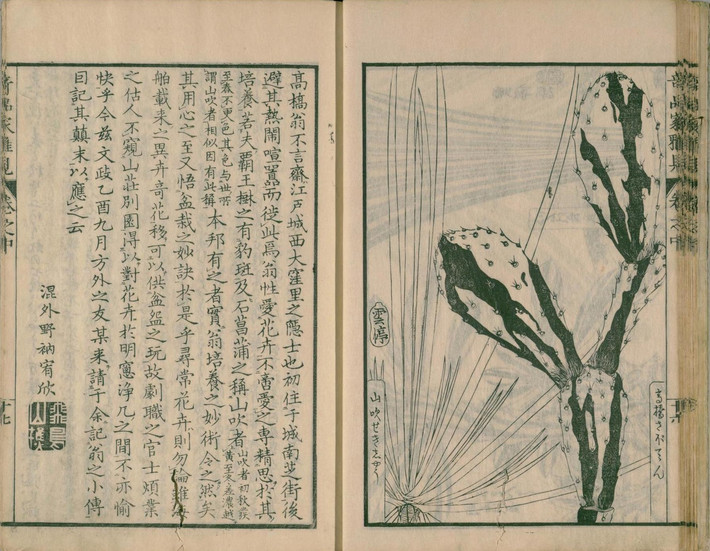 雲亭
山吹せきせう
高橋さぼてん
高橋翁不言齋江戸城西大窪里之隱士也初住于城南芝街後
避其熱鬧喧囂而徙此焉翁性愛花卉不啻愛之專精思於其
培養若夫覇王掛之有豹斑及石菖蒲之稱山吹者
至春不更色其色与世所
謂山吹者相似因有此稱本邦有之者實翁培養之妙術令之然矣
其用心之至又悟盆栽之妙訣於是乎尋常花卉則勿論雖
舶載來之異卉奇花移可以供盆盌之玩故劇職之官士煩業
之估人不窺山莊別園得以對花卉於明窻淨几之間不亦愉
快乎今兹文政乙酉九月方外之友某来請于余記翁之小傳
因記其顛末以應之云
混外野衲宥欣